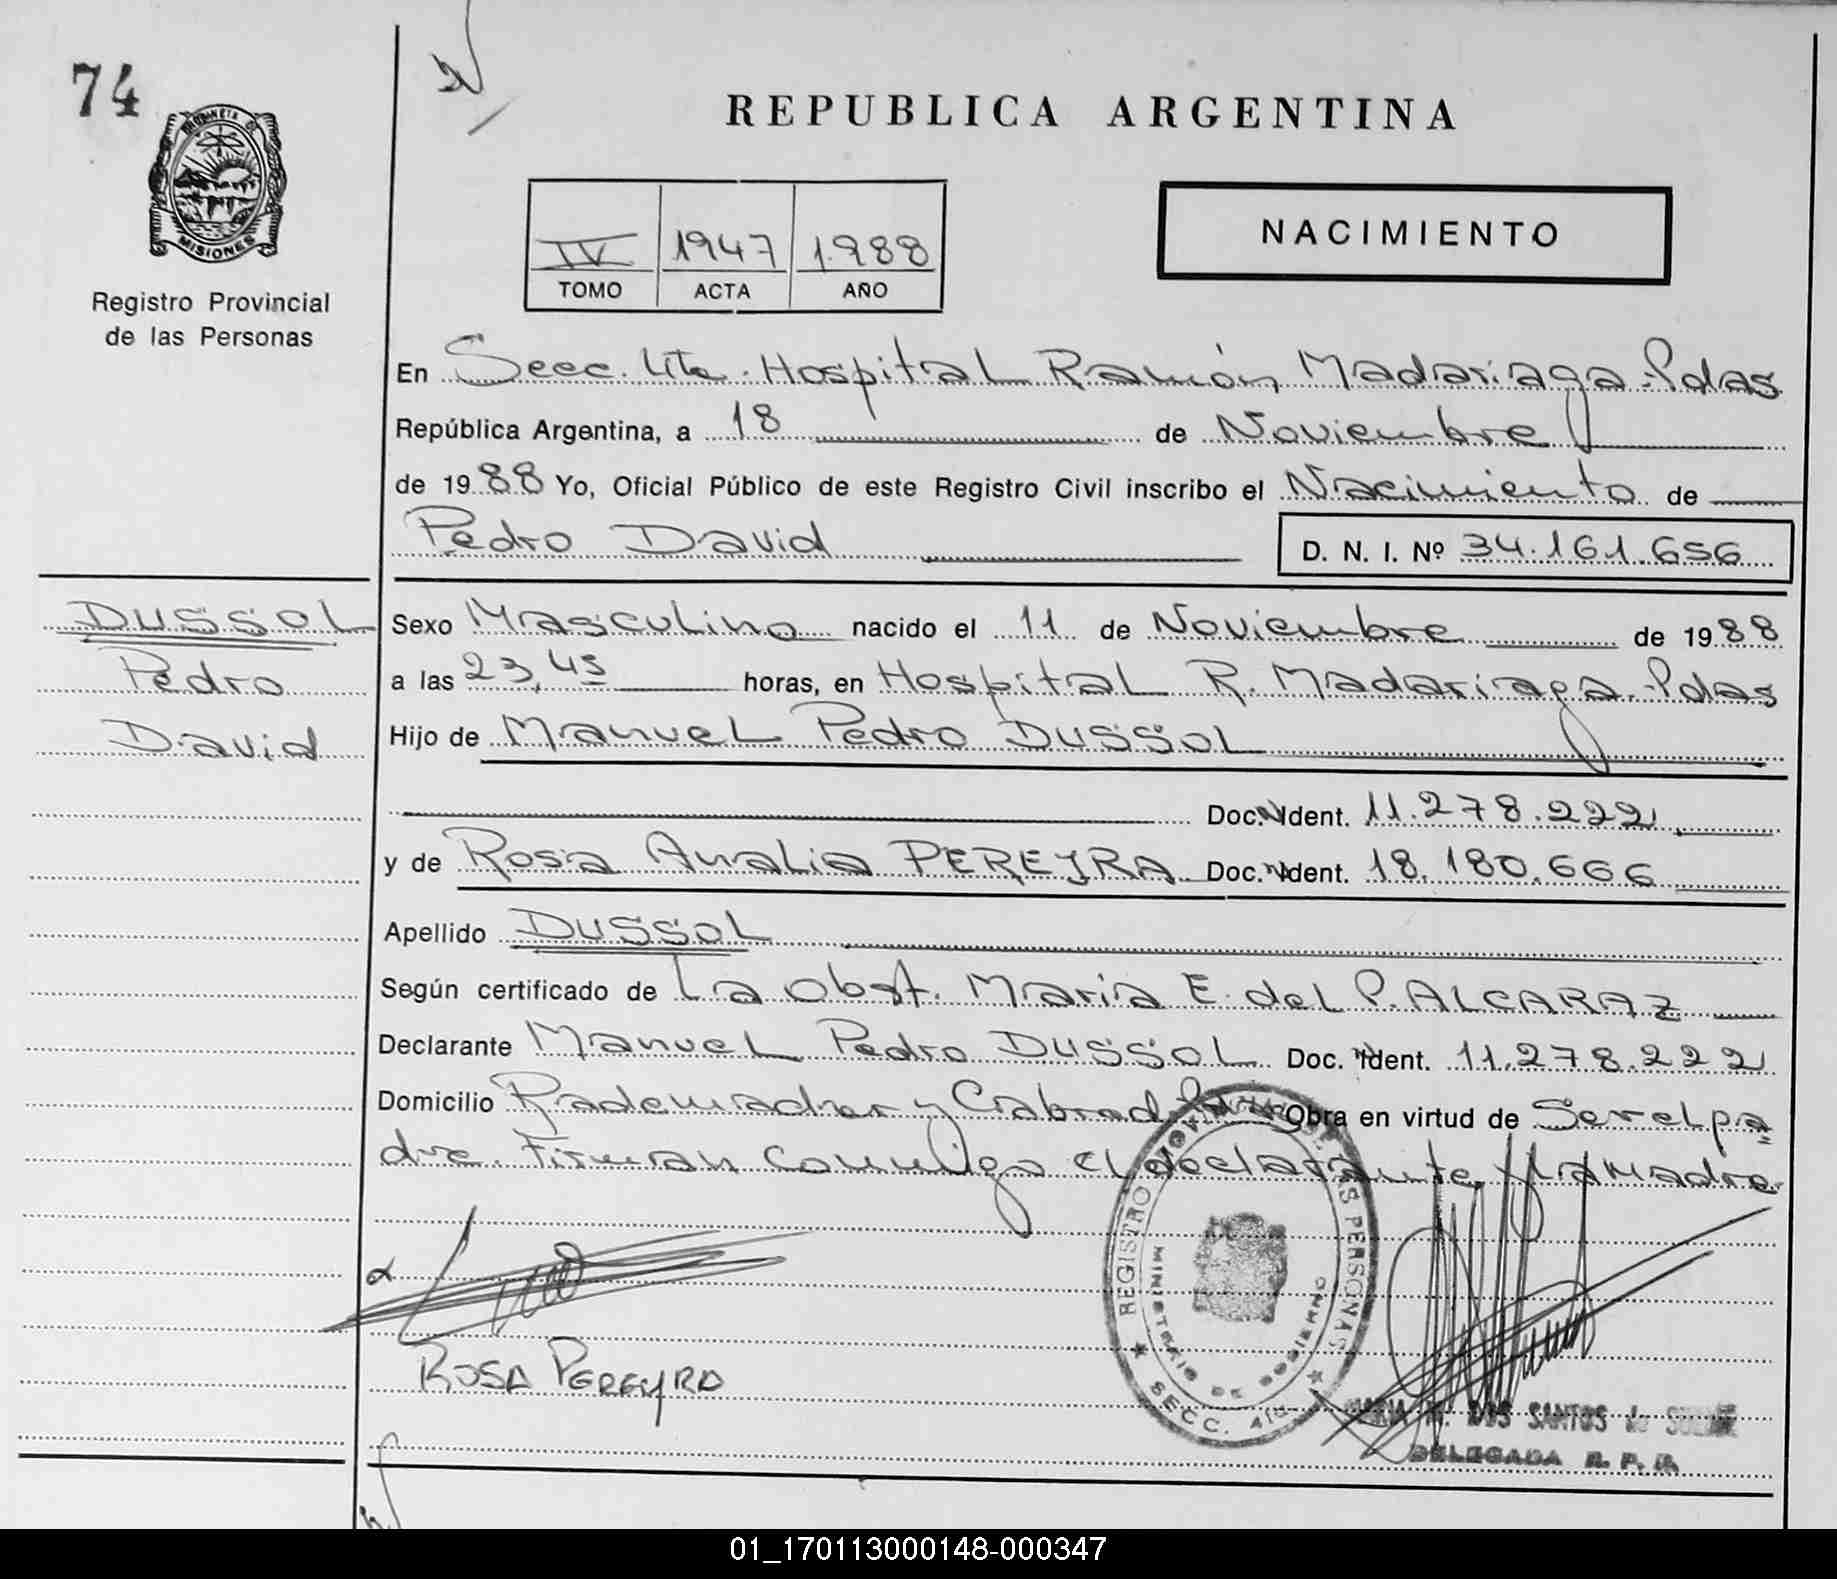 74
REPUBLICA ARGENTINA
PROVINCIA DE
MISIONES
Registro Provincial
de las Personas
IV 1947 1988
TOMO ACTA AÑO
NACIMIENTO
En Secc. 4ta. Hospital Ramón Madariaga-Pdas
República Argentina, a 18 de Noviembre
de 1988 Yo, Oficial Público de este Registro Civil inscribo el Nacimiento de
Pedro David D. N. I. Nº 34.161.656
DUSSOL
Pedro
David
Sexo Masculino nacido el 11 de Noviembre de 1988
a las 23,45 horas, en Hospital R. Madariaga-Pdas
Hijo de Manuel Pedro DUSSOL
Doc. Ident. 11.278.222
y de Rosa Analia PEREYRA Doc. Ident. 18.180.666
Apellido DUSSOL
Según certificado de La Obst. Maria E. del P. ALCARAZ
Declarante Manuel Pedro DUSSOL Doc. Ident. 11.278.222
Domicilio Rademacher y Cabred Obra en virtud de Ser el pa=
dre. Firman conmigo el declarante y la Madre.
ROSA PEREYRA
REGISTRO DE LAS PERSONAS
MINISTERIO DE GOBIERNO
SECC. 4ta
DOS SANTOS de
DELEGADA R. P. P.
01_170113000148-000347